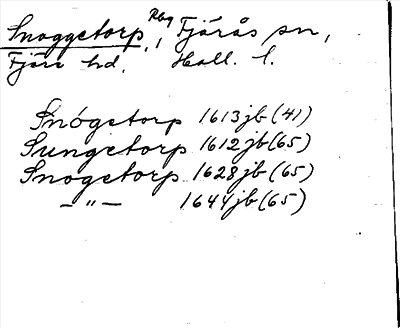 Snoggetorp, Rbg, Fjärås sn,
Fjäre hd. Hall. l.
Snógetorp 1613 jb (41)
Sungetorp 1612 jb (65)
Snogetorp 1628 jb (65)
— " — 1644 jb (65)